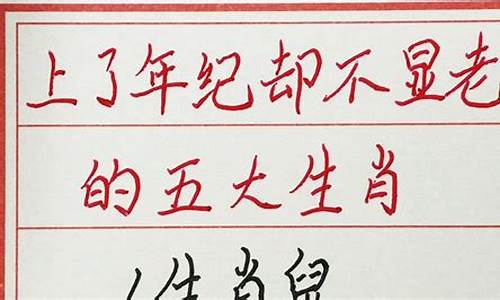 上了年纪却不显老
的五大生肖
1生肖鼠